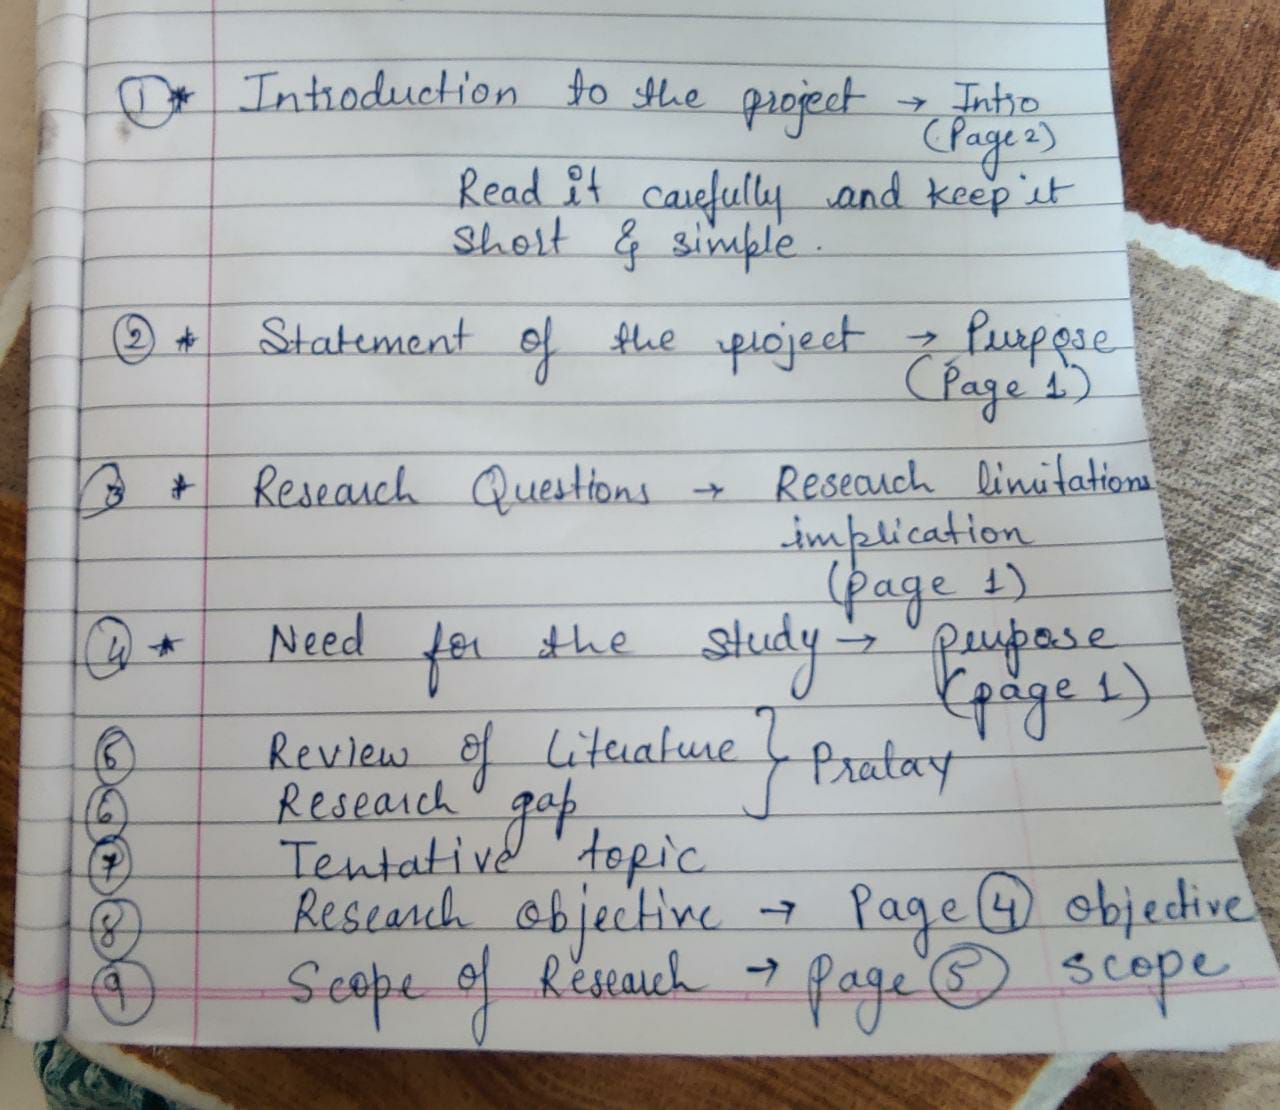 ① * Introduction to the project → Intro
(Page 2)
Read it carefully and keep it
short & simple.
② * Statement of the project → Purpose
(Page 1)
③ * Research Questions → Research limitations
implication
(page 1)
④ * Need for the study → purpose
(page 1)
⑤ Review of literature } Pralay
⑥ Research gap
⑦ Tentative topic
⑧ Research objective → Page ④ objective
⑨ Scope of Research → page ⑤ scope